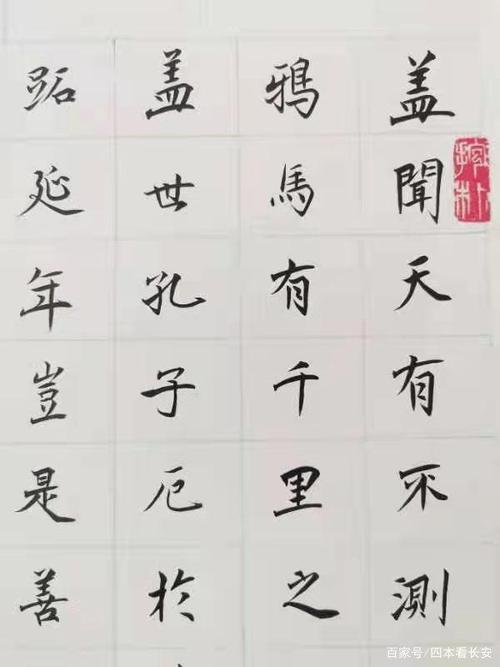 蓋聞天有不測
鴉馬有千里之
蓋世孔子厄於
跖延年豈是善
百家号/四本看长安